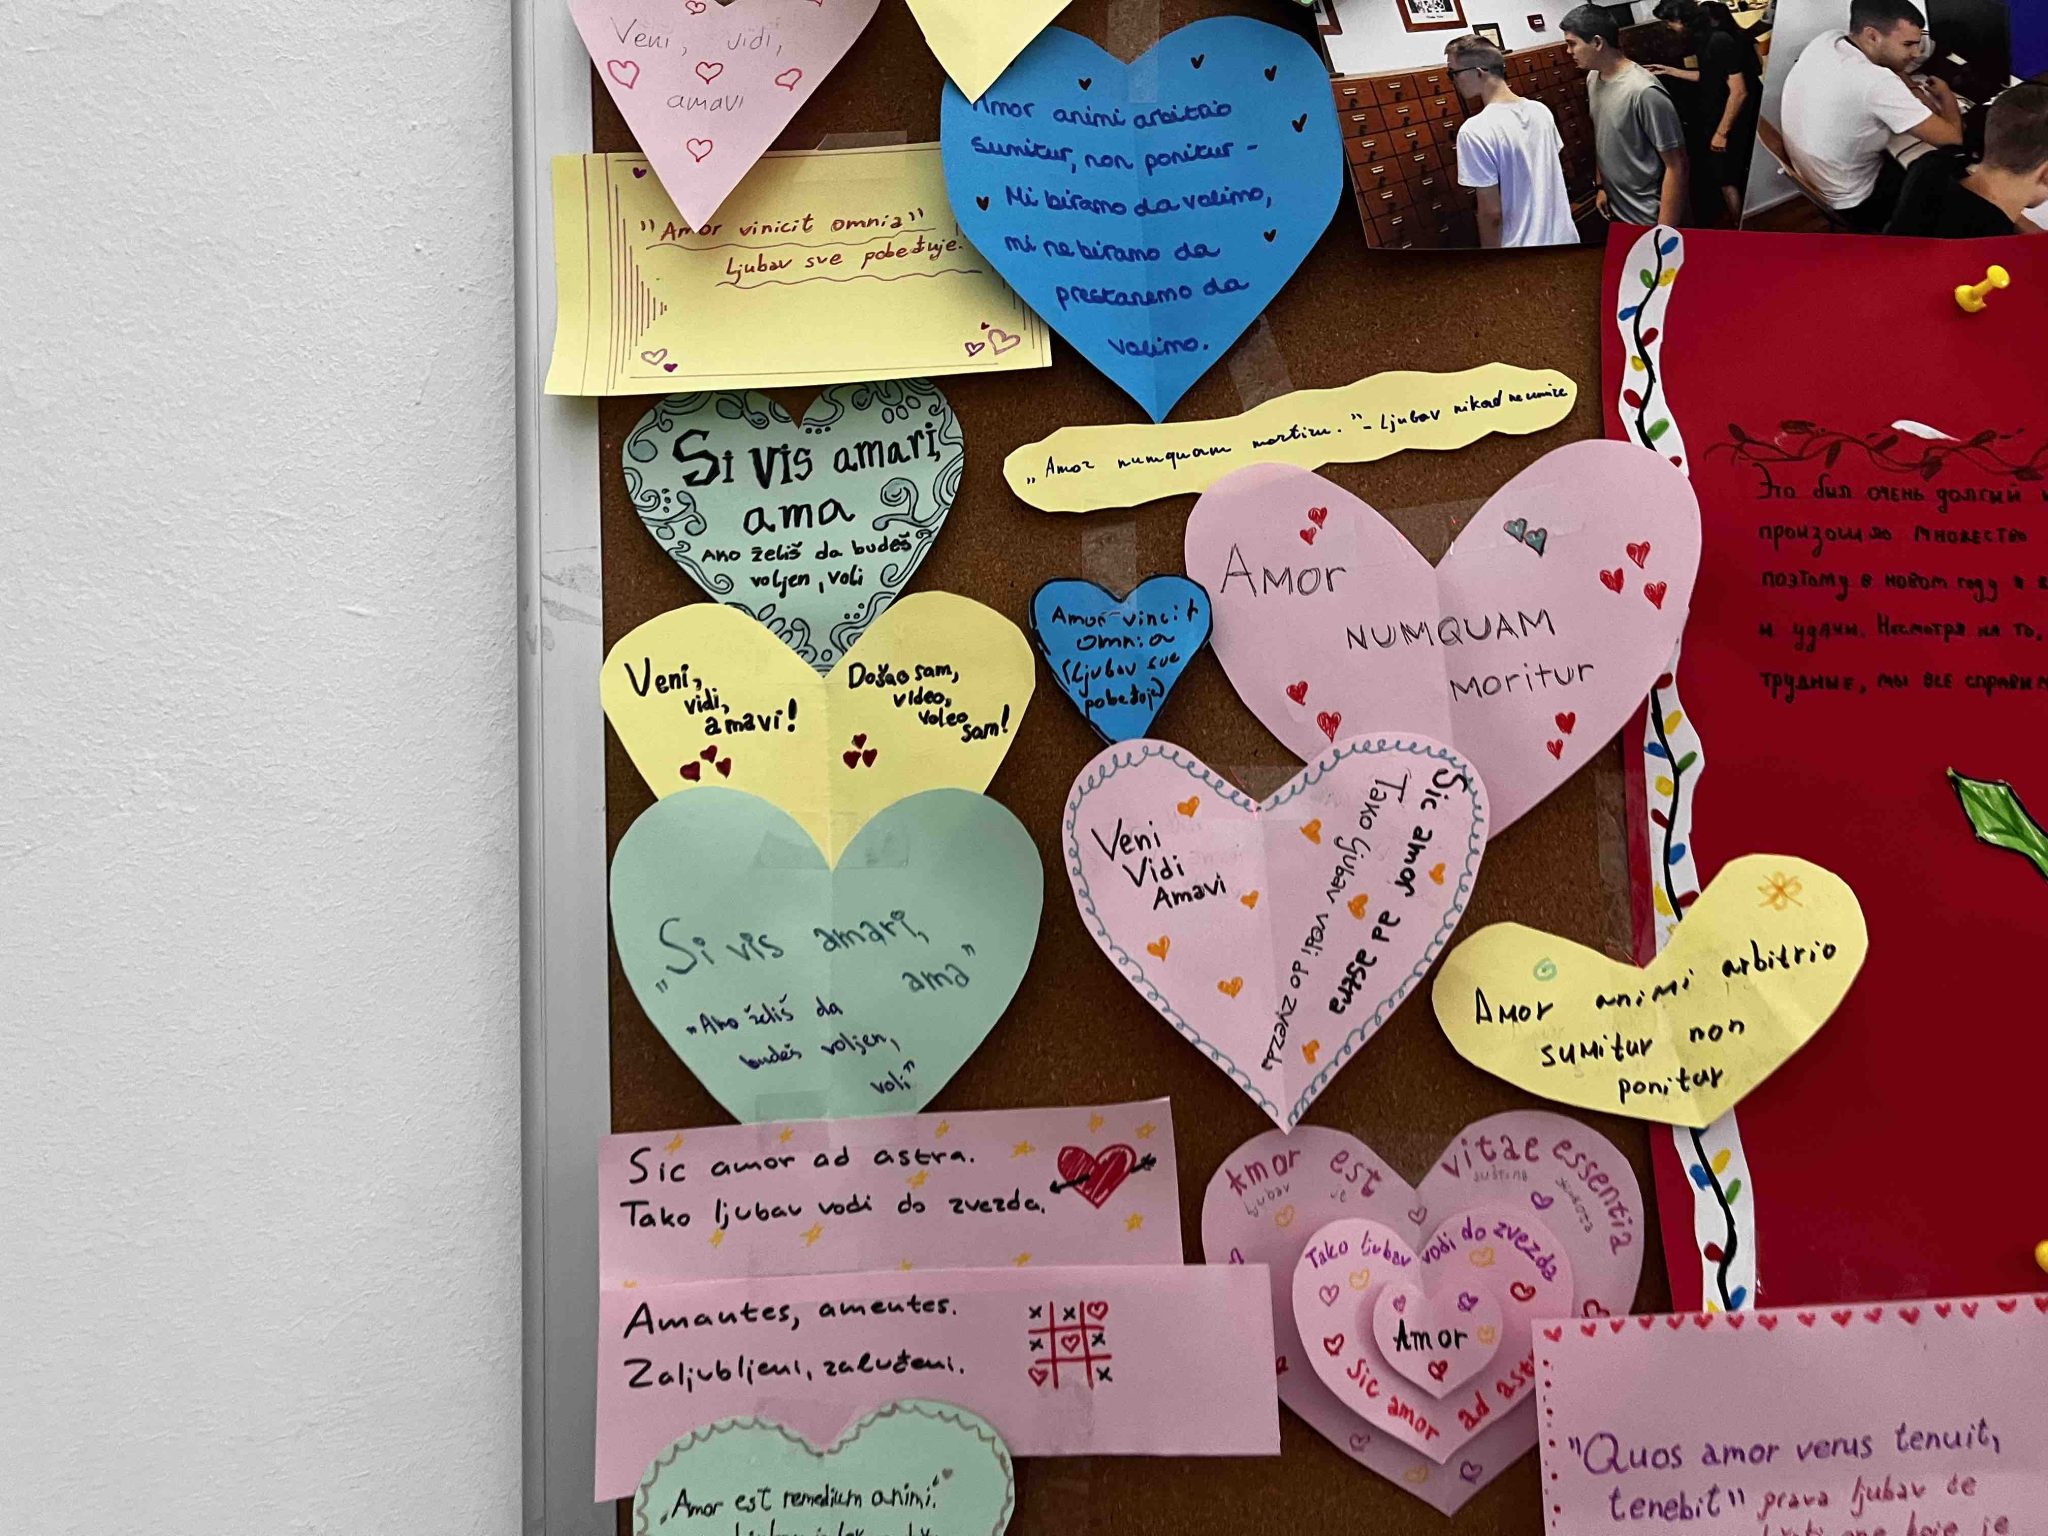 Veni, vidi,
amavi
"Amor vinicit omnia"
Ljubav sve pobeđuje.
Amor animi arbitrio
sumitur, non ponitur -
Mi biramo da volimo,
mi ne biramo da
prestanemo da
volimo.
„Amor numquam moritur." - Ljubav nikad ne umire
Si vis amari,
ama
Ako želiš da budeš
voljen, voli
Amor
numquam
moritur
Amor vincit
omnia
(Ljubav sve
pobeđuje)
Veni,
vidi,
amavi!
Došao sam,
video,
voleo
sam!
Veni
Vidi
Amavi
Sic amor ad astra
Tako ljubav vodi do zvezda
„Si vis amari,
ama"
„Ako želiš da
budeš voljen,
voli"
Amor animi arbitrio
sumitur non
ponitur
Sic amor ad astra.
Tako ljubav vodi do zvezda.
Amantes, amentes.
Zaljubljeni, zaluđeni.
x x
x x
x
Amor est vitae essentia
ljubav je suština života
Tako ljubav vodi do zvezda
Amor
Sic amor ad
„Amor est remedium animi."
"Quos amor verus tenuit,
tenebit" prava ljubav će
Это был очень долгий
произошло множество
поэтому в новом году я
и удачи. Несмотря на то,
трудные, мы все справим